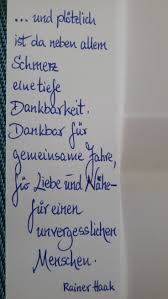 ... und plötzlich
ist da neben allem
Schmerz
eine tiefe
Dankbarkeit.
Dankbar für
gemeinsame Jahre,
für Liebe und Nähe -
für einen
unvergesslichen
Menschen.
Rainer Haak